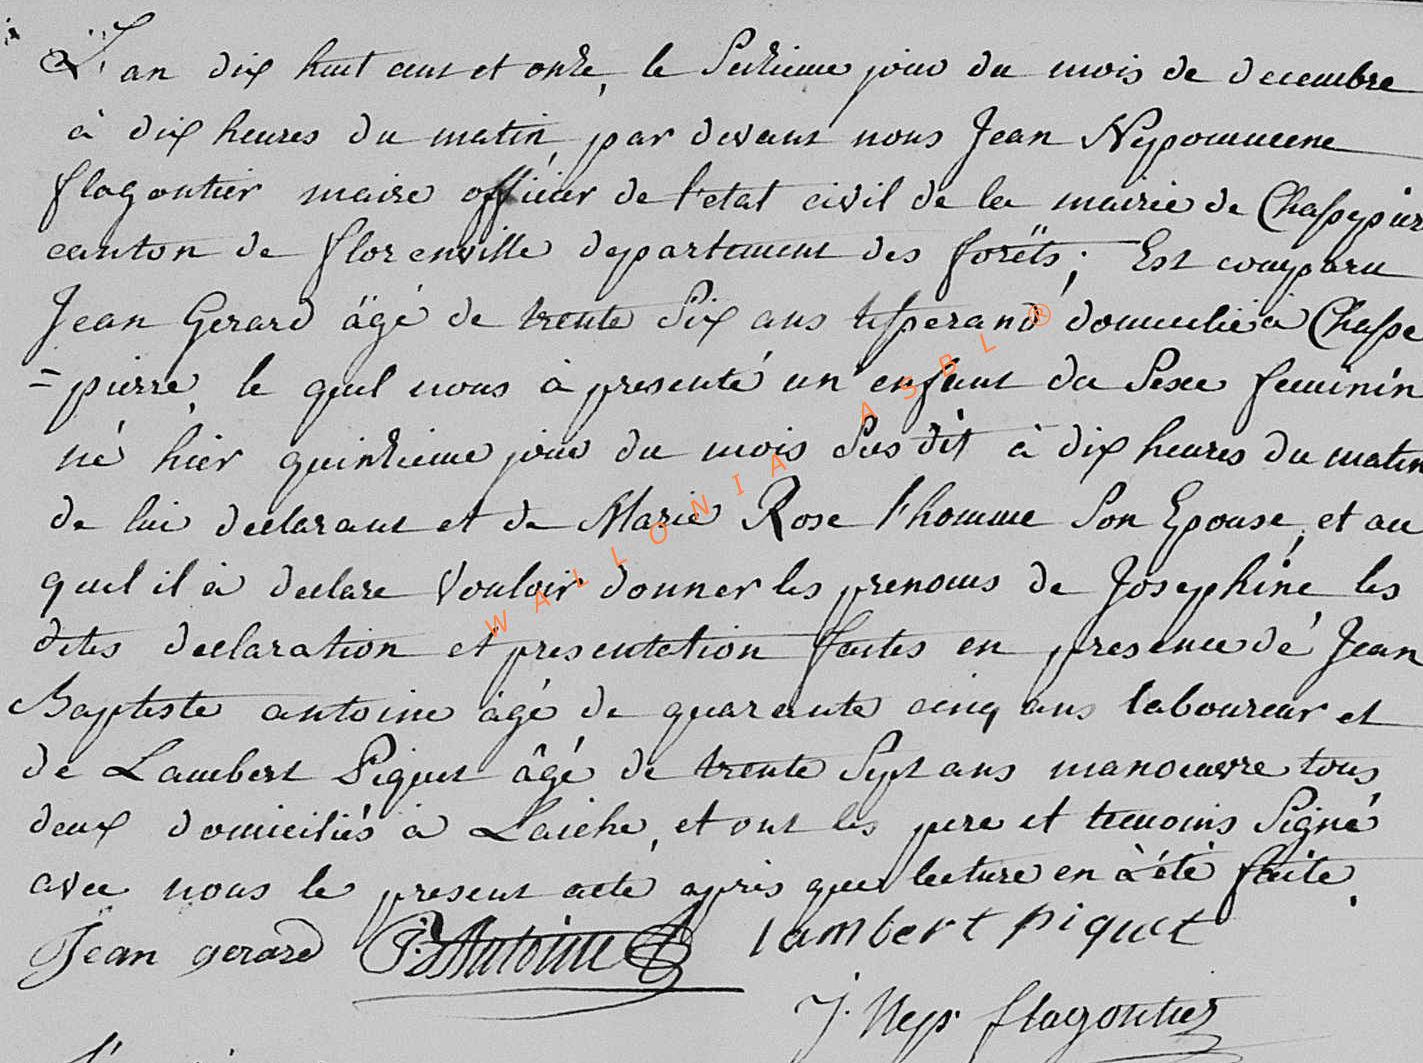 L'an dix huit cent et onze, le Seizieme jour du mois de decembre
à dix heures du matin, par devant nous Jean Nepomucene
flagontier maire officier de l'etat civil de la mairie de Chassepier
canton de florenville departement des forêts; Est comparu
Jean Gerard âgé de trente Six ans tisserand domicilié à Chasse
=pierre, le quel nous à presenté un enfant du Sexe feminin
né hier quinzieme jour du mois Sus dit à dix heures du matin
de lui declarant et de Marie Rose l'homme Son Epouse, et au
quel il à declare Vouloir donner les prenoms de Josephine, les
dites declaration et presentation faites en presence de Jean
Baptiste antoine âgé de quarante cinq ans laboureur et
de Lambert Piquet âgé de trente Sept ans manoeuvre tous
deux domiciliés à Laiche, et ont les pere et temoins Signé
avec nous le present acte, apris que lecture en à été faite.
Jean gerard J.B Antoine lambert piquet
J. Nep. flagontier
WALLONIA ASBL ®